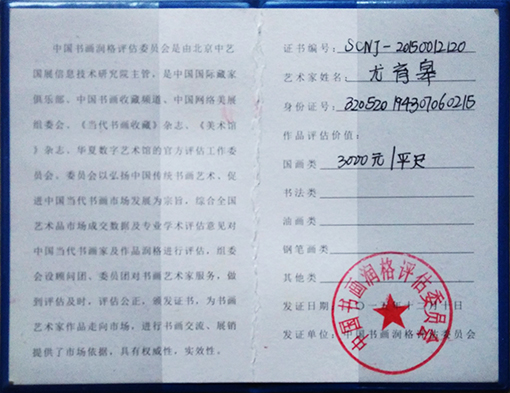 中国书画润格评估委员会是由北京中艺
国展信息技术研究院主管，是中国国际藏家
俱乐部、中国书画收藏频道、中国网络美展
组委会、《当代书画收藏》杂志、《美术馆
》杂志、华夏数字艺术馆的官方评估工作委
员会。委员会以弘扬中国传统书画艺术、促
进中国当代书画市场发展为宗旨，综合全国
艺术品市场成交数据及专业学术评估意见对
中国当代书画家及作品润格进行评估，组委
会设顾问团、委员团对书画艺术家服务，做
到评估及时，评估公正，颁发证书，为书画
艺术家作品走向市场，进行书画交流、展销
提供了市场依据，具有权威性，实效性。
证书编号：SCNJ-20150012120
艺术家姓名：尤育皋
身份证号：320520194307060215
作品评估价值：
国画类 3000元/平尺
书法类
油画类
钢笔画类
其他类
发证日期：二〇一五年十二月十日
发证单位：中国书画润格评估委员会
中国书画润格评估委员会